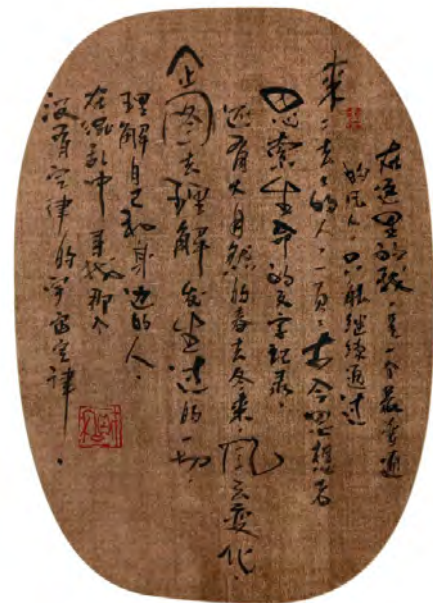 在这里的我，是一个最普通
的凡人，只能继续通过
来来去去的人，一页页古今思想者
思索生命的文字记录，
还有大自然的春去冬来，风云变化，
企图去理解发生过的一切，
理解自己和身边的人，
在混乱中寻找那个
没有定律的宇宙定律。